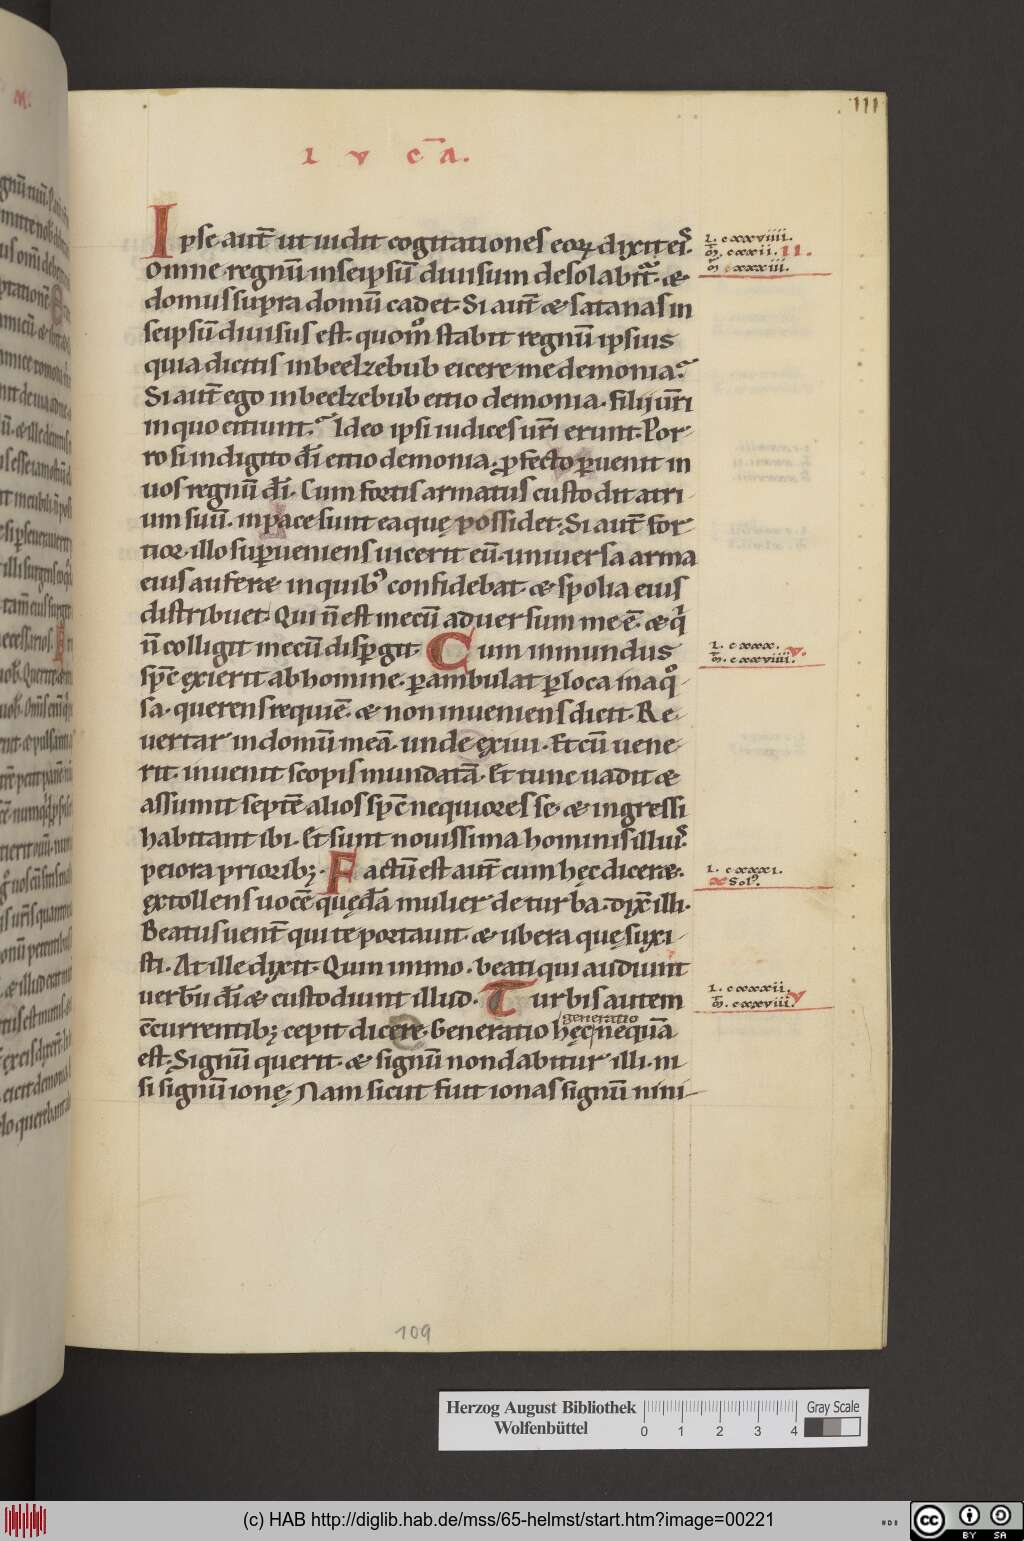 LVCA.
111
Ipse aut̄ ut uidit cogitationes eoꝝ dixit ei᷒
Omne regnū inseipsū diuisum desolabit᷑. &
domus supra domū cadet. Si aut̄ & satanas in
seipsū diuisus est. quom̊ stabit regnū ipsius
quia dicitis in beelzebub eicere me demonia.
Si aut̄ ego in beelzebub eitio demonia. filij ur̄i
in quo eitiunt. Ideo ipsi iudices ur̄i erunt. Por-
ro si in digito dī eitio demonia. ꝓfecto ꝑuenit in
uos regnū dī. Cum fortis armatus custodit atri-
um suū. in pace sunt ea quę possidet. Si aut̄ for
tior illo suꝑueniens uicerit eū. uniuersa arma
eius aufer& in quibꝰ confidebat. & spolia eius
distribuet. Qui n̄ est mecū aduersum me ē. & qͥ
n̄ colligit mecū disꝑgit. Cum inmundus
spc̄ exierit ab homine. ꝑambulat ꝑ loca inaqͦ-
sa. querens requiē. & non inueniens dicit. Re-
uertar in domū meā. unde exiui. Et cū uene-
rit. inuenit scopis mundatā. Et tunc uadit &
assumit septē alios spc̄ nequiores se. & ingressi
habitant ibi. Et sunt nouissima hominis illui᷒
peiora prioribꝫ. Factū est aut̄ cum hęc dicer&.
extollens uocē quędā mulier de turba. dix̄ illi.
Beatus uent̄ qui te portauit. & ubera quę suxi-
sti. At ille dixit. Quin immo. beati qui audiunt
uerbū dī & custodiunt illud. Turbis autem
c̄currentibꝫ cepit dicere. Generatio hęc nequā
generatio
est. Signū querit. & signū non dabitur illi. ni
si signū ionę. Nam sicut fuit ionas signū nini-
l. cxxviiii.
m̄. cxxii. II.
m̊. cxxxiii.
l. cxxx. V.
m̄. cxxviiii.
l. cxxxi.
X Solꝰ.
l. cxxxii. V
m̄. cxxviii.
109
Herzog August Bibliothek
Wolfenbüttel
0 1 2 3 4
Gray Scale
(c) HAB http://diglib.hab.de/mss/65-helmst/start.htm?image=00221
cc BY SA